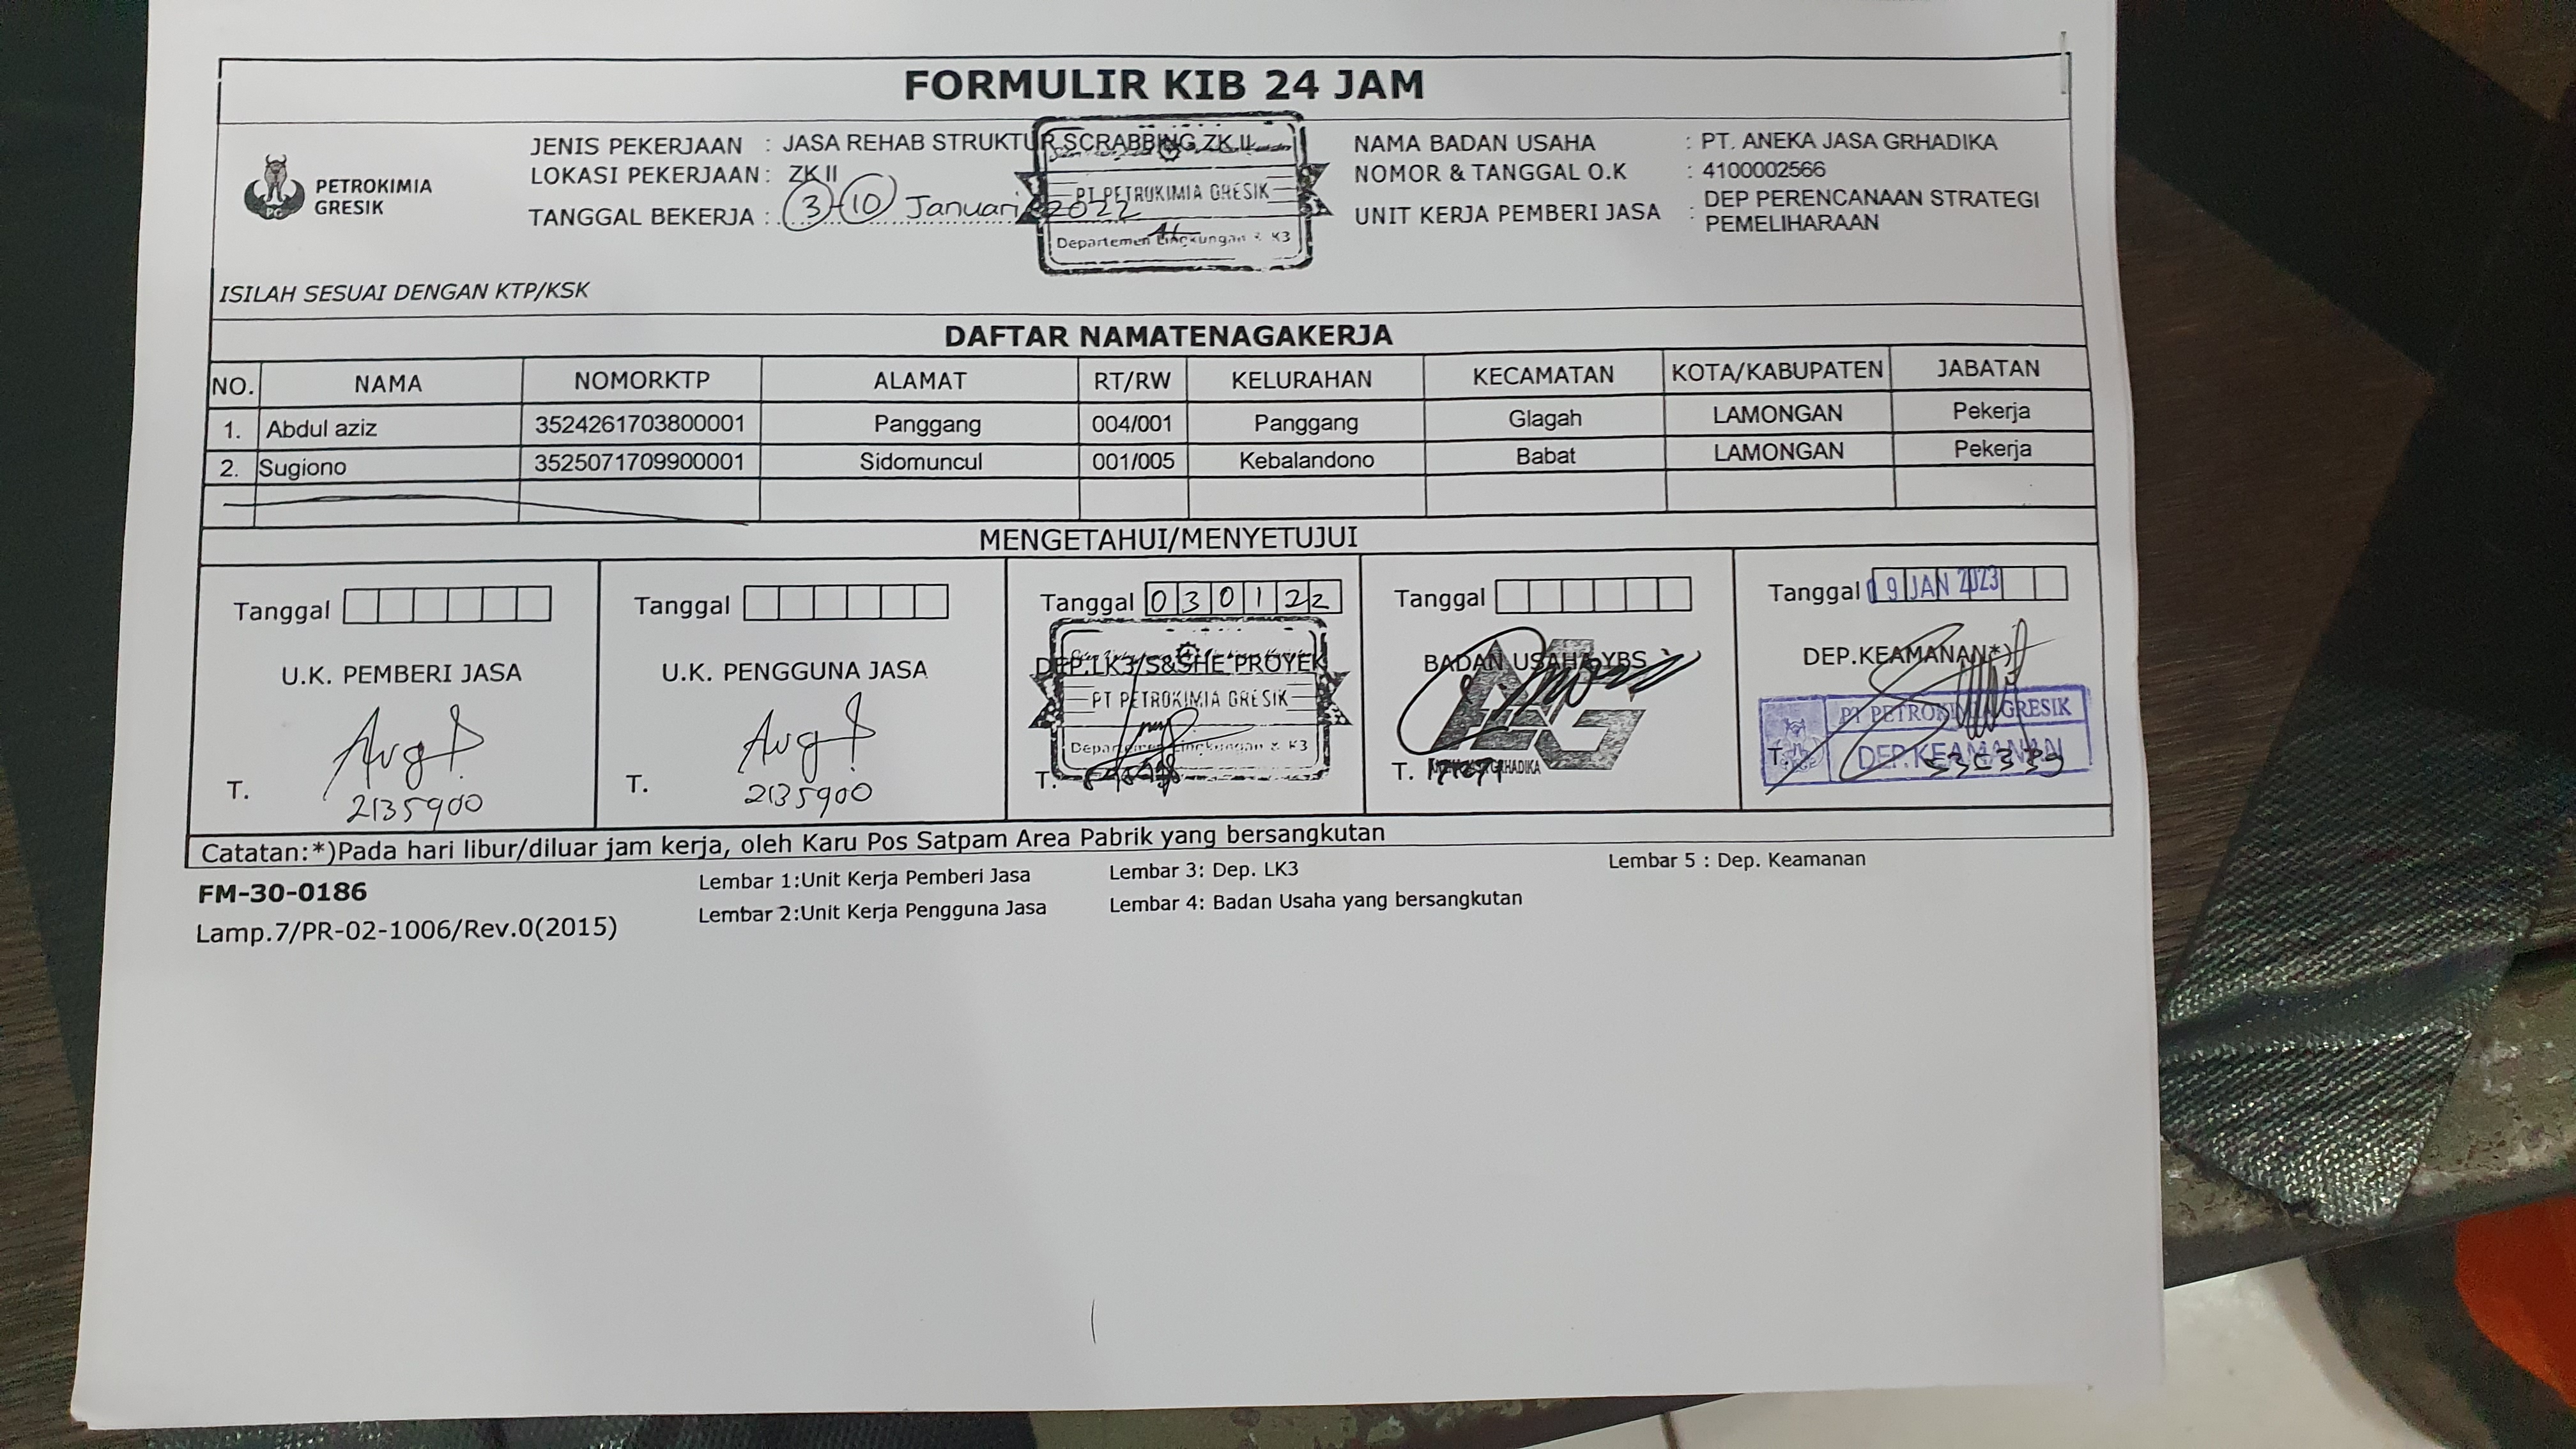 FORMULIR KIB 24 JAM
PETROKIMIA
GRESIK
JENIS PEKERJAAN : JASA REHAB STRUKTUR SCRABBING ZK II
LOKASI PEKERJAAN : ZK II
TANGGAL BEKERJA : 3 - 10 Januari 2022
PT PETROKIMIA GRESIK
Departemen Lingkungan & K3
NAMA BADAN USAHA : PT. ANEKA JASA GRHADIKA
NOMOR & TANGGAL O.K : 4100002566
UNIT KERJA PEMBERI JASA : DEP PERENCANAAN STRATEGI
PEMELIHARAAN
ISILAH SESUAI DENGAN KTP/KSK
DAFTAR NAMATENAGAKERJA
NO. NAMA NOMORKTP ALAMAT RT/RW KELURAHAN KECAMATAN KOTA/KABUPATEN JABATAN
1. Abdul aziz 3524261703800001 Panggang 004/001 Panggang Glagah LAMONGAN Pekerja
2. Sugiono 3525071709900001 Sidomuncul 001/005 Kebalandono Babat LAMONGAN Pekerja
MENGETAHUI/MENYETUJUI
Tanggal
U.K. PEMBERI JASA
T. 2135900
Tanggal
U.K. PENGGUNA JASA
T. 2135900
Tanggal 030122
DEP.LK3/S&SHE PROYEK
PT PETROKIMIA GRESIK
Departemen Lingkungan & K3
T.
Tanggal
BADAN USAHA YBS
T.
GRHADIKA
Tanggal 09 JAN 2023
DEP.KEAMANAN*)
PT PETROKIMIA GRESIK
T. DEP.KEAMANAN
Catatan:*)Pada hari libur/diluar jam kerja, oleh Karu Pos Satpam Area Pabrik yang bersangkutan
FM-30-0186
Lamp.7/PR-02-1006/Rev.0(2015)
Lembar 1:Unit Kerja Pemberi Jasa
Lembar 2:Unit Kerja Pengguna Jasa
Lembar 3: Dep. LK3
Lembar 4: Badan Usaha yang bersangkutan
Lembar 5 : Dep. Keamanan